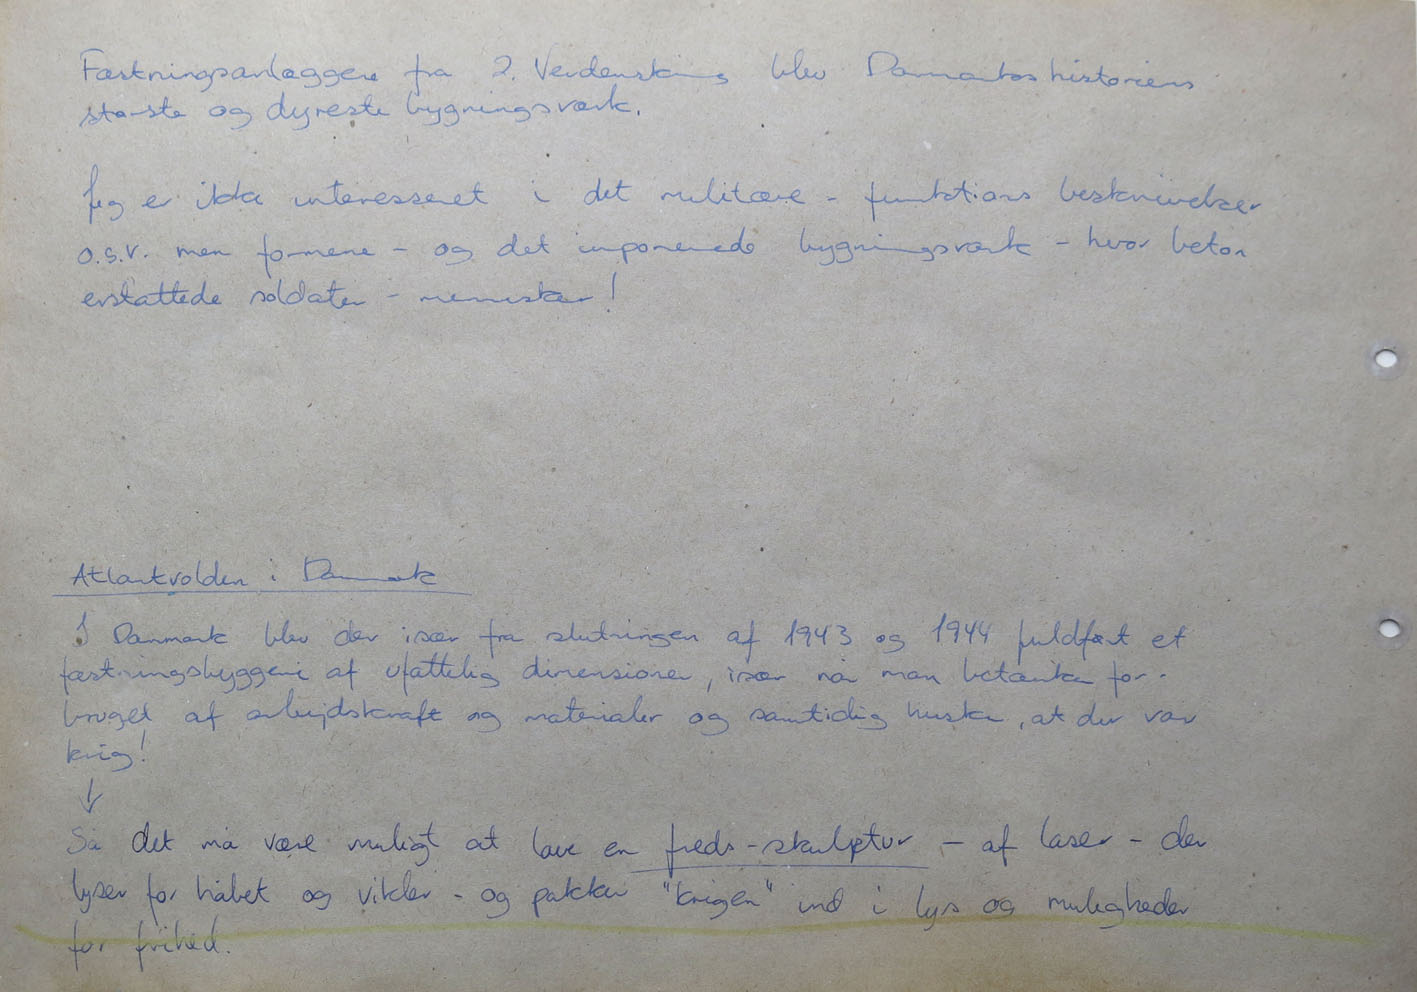 Fæstningsanlæggene fra 2. Verdenskrig blev Danmarkshistoriens
største og dyreste bygningsværk.
Jeg er ikke interesseret i det militære - funktions beskrivelser
o.s.v. men formene - og det imponerende bygningsværk - hvor beton
erstattede soldater - mennesker!
Atlantvolden i Danmark
I Danmark blev der især fra slutningen af 1943 og 1944 fuldført et
fæstningsbyggeri af ufattelig dimensioner, især når man betænker for-
bruget af arbejdskraft og materialer og samtidig husker, at der var
krig!
↓
Så det må være muligt at lave en freds-skulptur - af laser - der
lyser for håbet og vikler - og pakker "krigen" ind i lys og muligheder
for frihed.